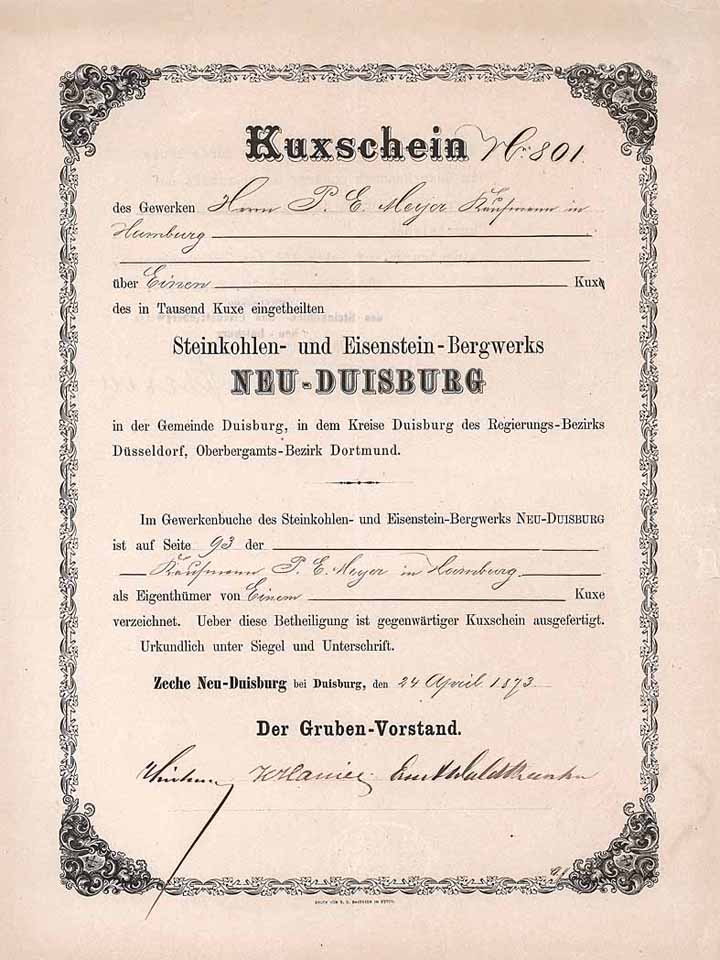 Kuxschein No. 801.
des Gewerken Herrn P. E. Meyer Kaufmann in
Hamburg
über Einen Kux
des in Tausend Kuxe eingetheilten
Steinkohlen- und Eisenstein-Bergwerks
NEU-DUISBURG
in der Gemeinde Duisburg, in dem Kreise Duisburg des Regierungs-Bezirks
Düsseldorf, Oberbergamts-Bezirk Dortmund.
Im Gewerkenbuche des Steinkohlen- und Eisenstein-Bergwerks NEU-DUISBURG
ist auf Seite 93 der
Kaufmann P. E. Meyer in Hamburg
als Eigenthümer von Einem Kuxe
verzeichnet. Ueber diese Betheiligung ist gegenwärtiger Kuxschein ausgefertigt.
Urkundlich unter Siegel und Unterschrift.
Zeche Neu-Duisburg bei Duisburg, den 24 April 1873
Der Gruben-Vorstand.